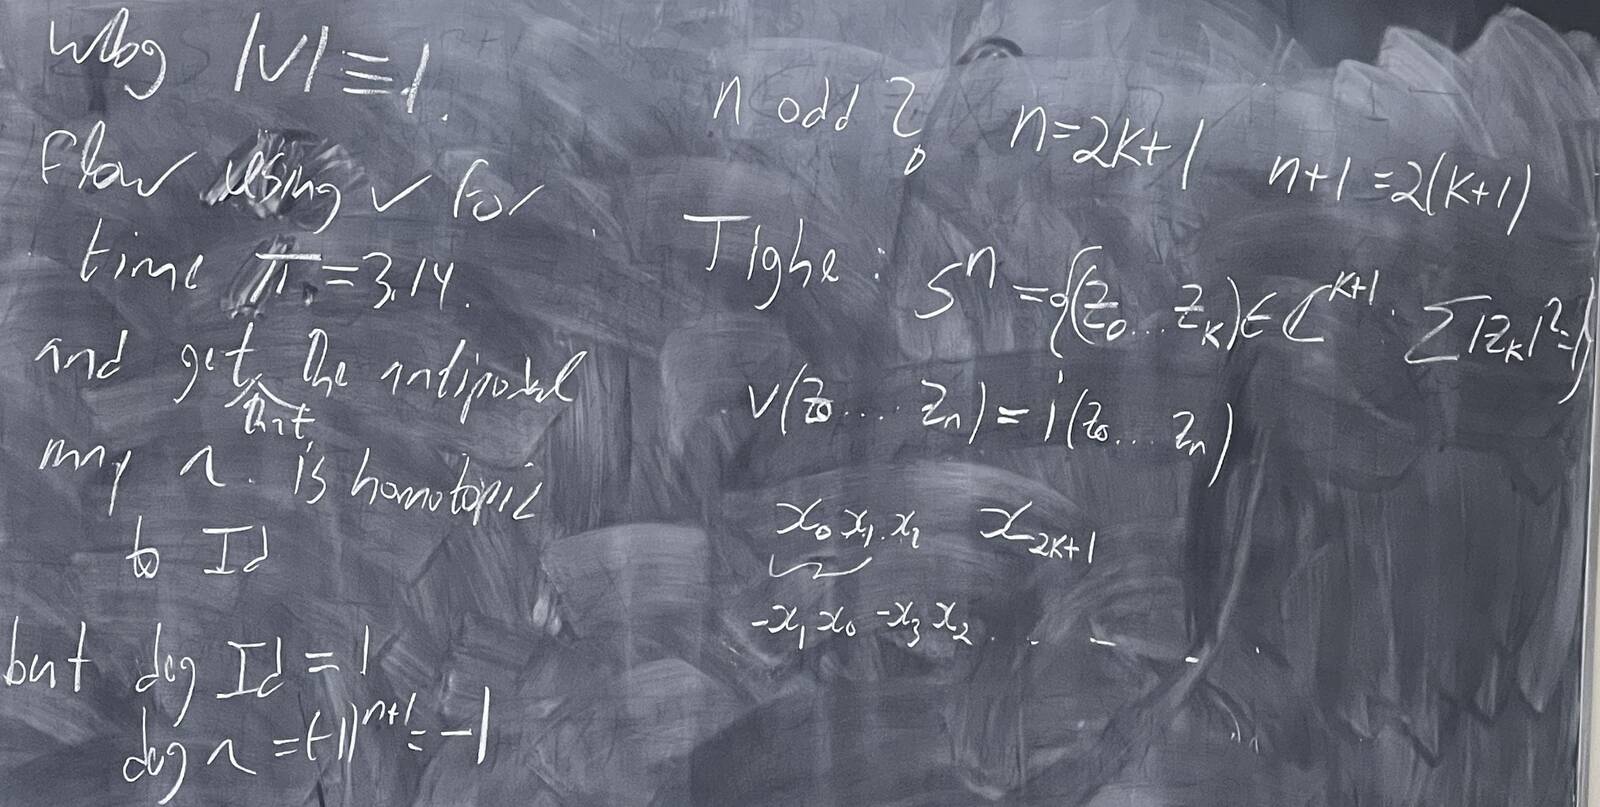 wlog |V| ≡ 1.
Flow using v for
time π = 3.14.
and get the antipodal
that
map r is homotopic
to Id
but deg Id = 1
deg r = (-1)^{n+1} = -1
n odd ? n=2k+1 n+1=2(k+1)
Tighe: S^n = {(z_0...z_k) ∈ ℂ^{k+1} : Σ|z_k|^2=1}
v(z_0.... z_n) = i(z_0... z_n)
x_0 x_1 x_2 x_{2k+1}
-x_1 x_0 -x_3 x_2 . . .